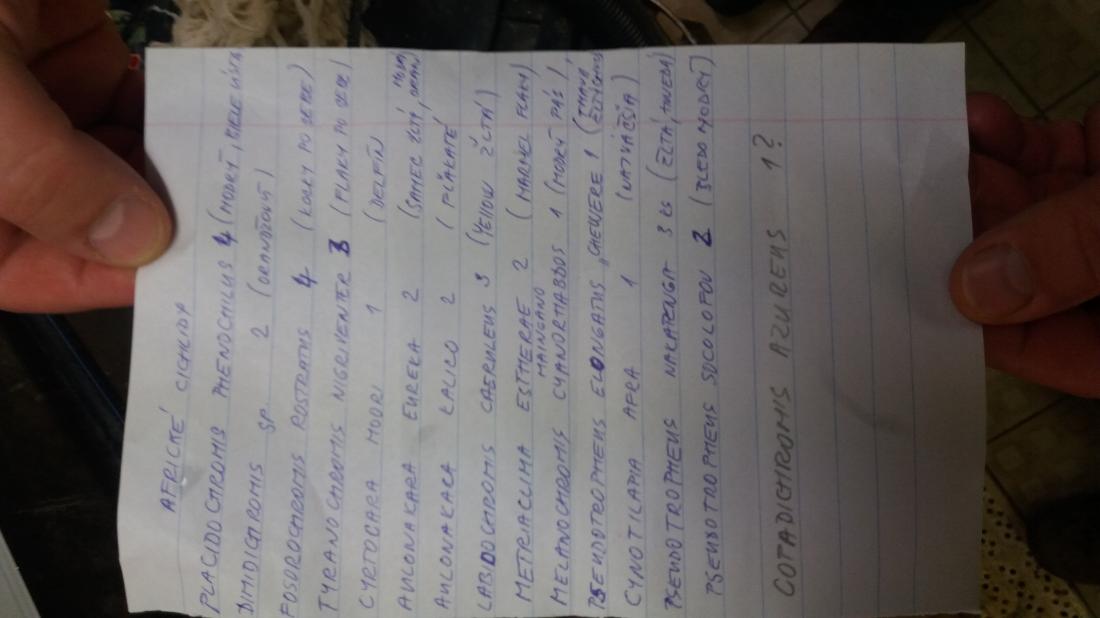 AFRICKÉ CICHLIDY
PLACIDOCHROMIS PHENOCHILUS 4 (MODRÝ, BIELE
DIMIDICHROMIS SP. 2 (ORANŽOVÝ)
FOSOROCHROMIS ROSTRATUS 4 (PO BOKE)
TYRANOCHROMIS NIGRIVENTER 3 (FLAKY PO BOKE)
CYRTOCARA MOORI 1 (DELFÍN
AULONAKARA EUREKA 2 (SAMEC ŽLTÝ, MODRÝ
AULONAKACA CALICO 2 (FĽAKATÉ
LABIDOCHROMIS CAERULEUS 3 (YELLOW ŽLTÁ)
METRIACLIMA ESTHERAE 2 (MARMEL FLAKY)
MAINGANO
MELANOCHROMIS CYANORHABDOS 1 (MODRÝ PÁS)
PSEUDOTROPHEUS ELONGATUS "CHEWERE 1 (TMAVÝ
CYNOTILAPIA AFRA 1 (NAJVÄČŠIA)
PSEUDOTROPHEUS 3 ks (ŽLTÁ, HNEDÁ)
PSEUDOTROPHEUS SOCOLOFOU 2 (BLEDO MODRÝ)
COTADICHROMIS AZUREUS 1?